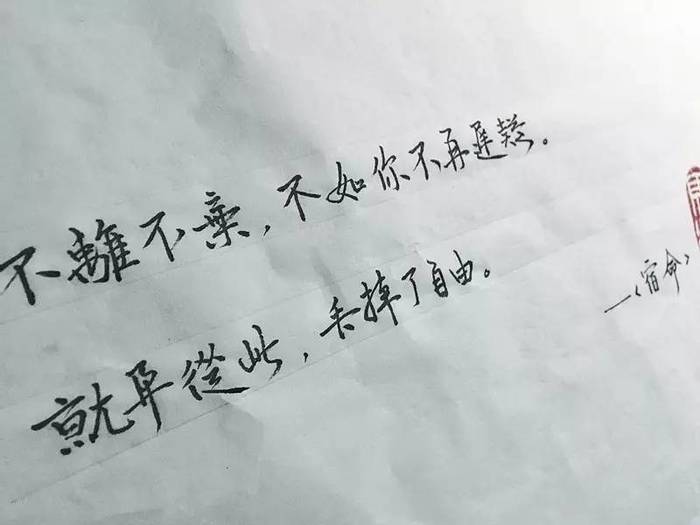 不離不棄，不如你不再遲疑。
就算從此，丢掉了自由。
—《宿命》